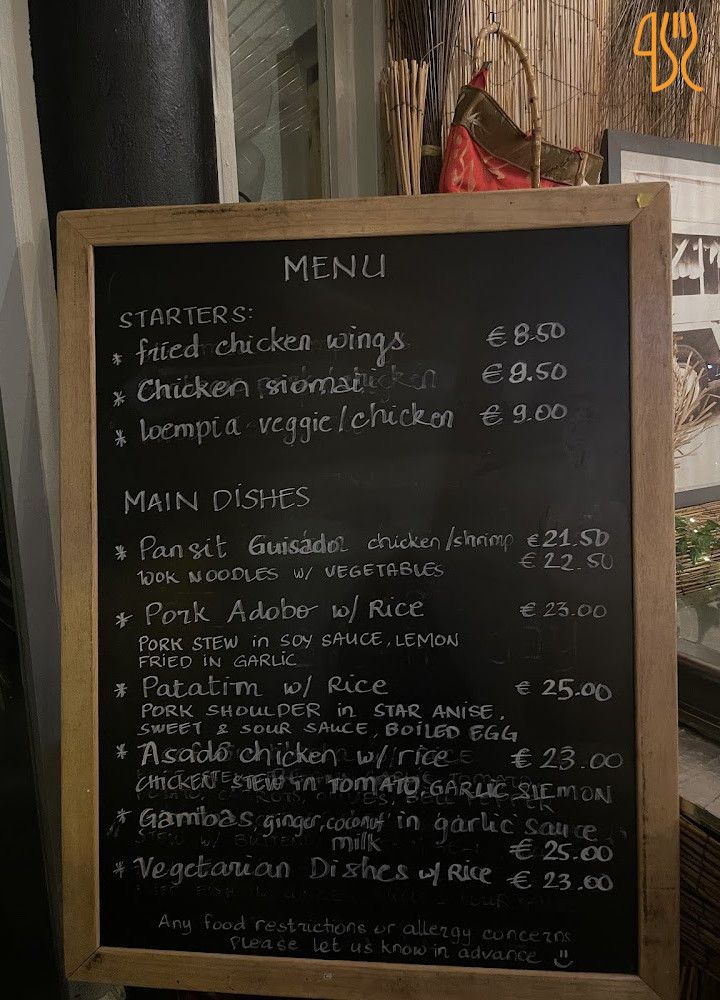 MENU
STARTERS:
* fried chicken wings € 8.50
* Chicken siomai € 8.50
* loempia veggie/chicken € 9.00
MAIN DISHES
* Pansit Guisádo chicken/shrimp € 21.50
€ 22.50
WOK NOODLES W/ VEGETABLES
* Pork Adobo w/ Rice € 23.00
PORK STEW in SOY SAUCE, LEMON
FRIED IN GARLIC
* Patatim w/ Rice € 25.00
PORK SHOULDER in STAR ANISE,
SWEET & SOUR SAUCE, BOILED EGG
* Asado chicken w/ rice € 23.00
CHICKEN STEW in TOMATO, GARLIC & LEMON
* Gambas, ginger, coconut in garlic sauce
milk € 25.00
* Vegetarian Dishes w/ Rice € 23.00
Any food restrictions or allergy concerns
Please let us know in advance